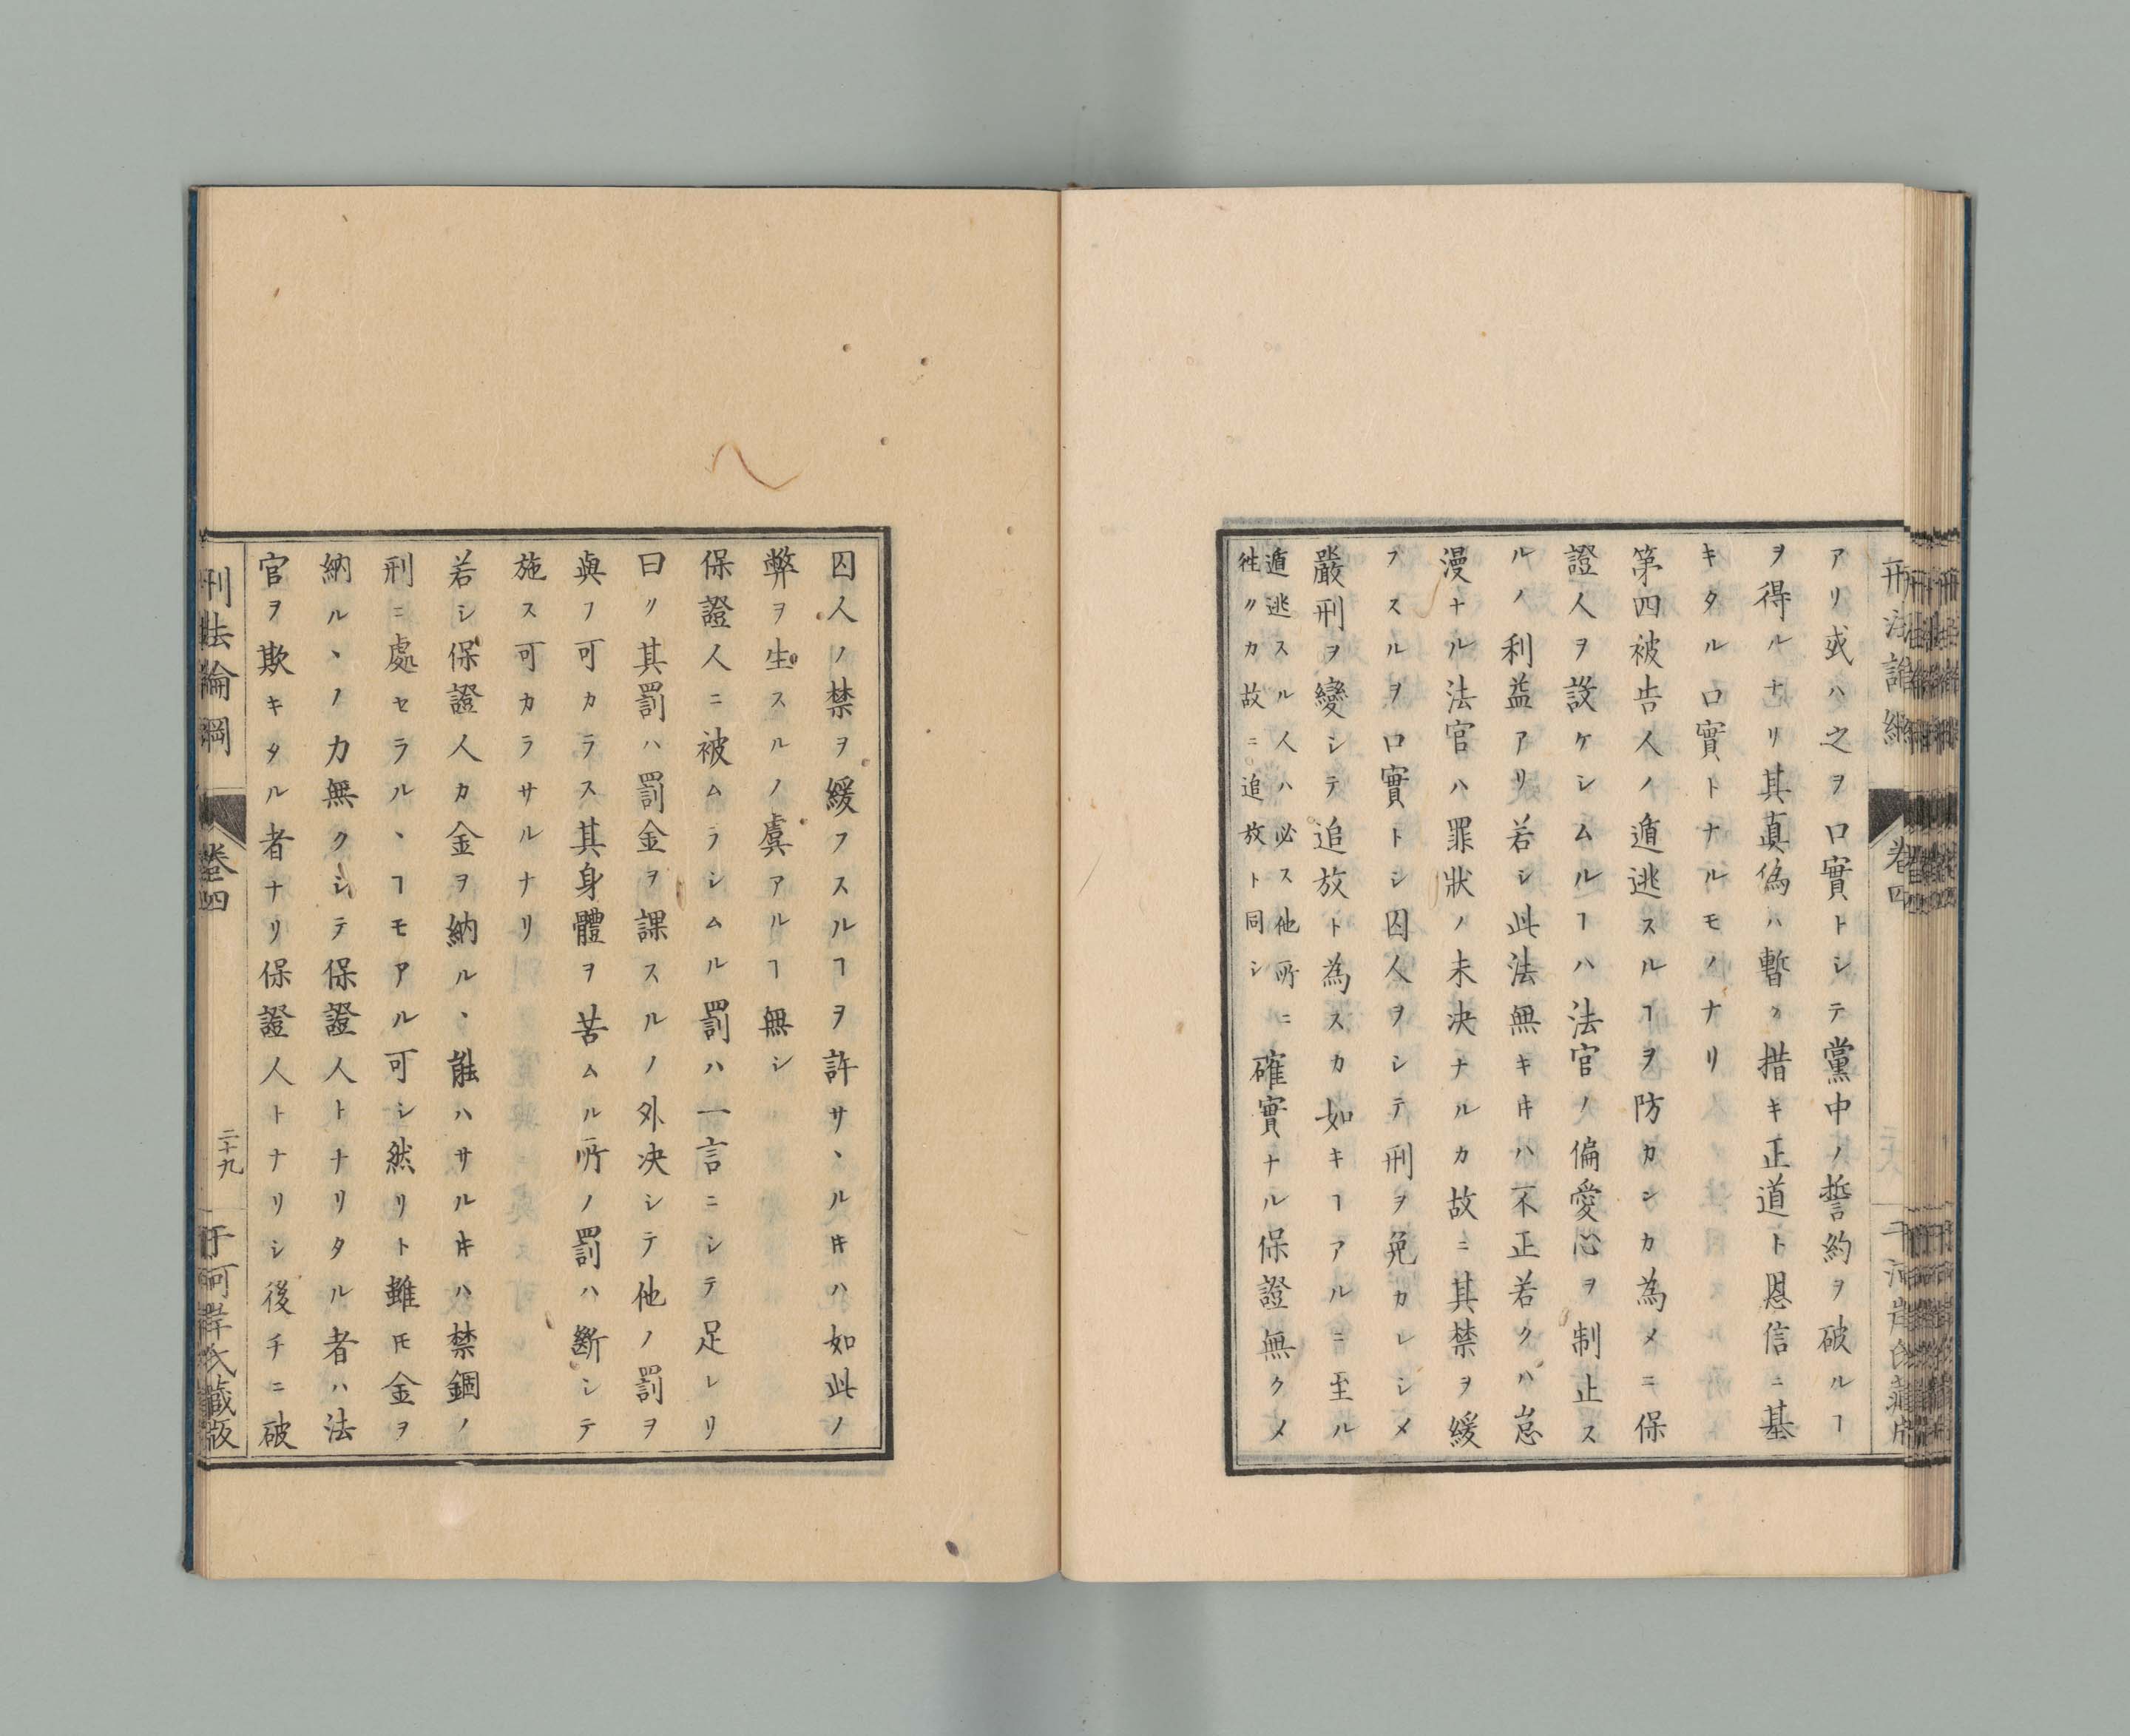 アリ或ハ之ヲ口實トシテ黨中ノ誓約ヲ破ルヿ
ヲ得ルナリ其真偽ハ暫ク措キ正道ト恩信ニ基
キタル口實トナルモノナリ
第四被告人ノ遁逃スルヿヲ防カンカ為メニ保
證人ヲ設ケシムルヿハ法官ノ偏愛心ヲ制止ス
ルノ利益アリ若シ此法無キㇰハ不正若クハ怠
漫ナル法官ハ罪狀ノ未決ナルカ故ニ其禁ヲ緩
フスルヲ口實トシ囚人ヲシテ刑ヲ免カレシメ
嚴刑ヲ變シテ追放ト為スカ如キヿアルニ至ル
遁逃スル人ハ必ス他所ニ
徃クカ故ニ追放ト同シ
確實ナル保證無クメ
刑法論綱
卷四
囚人ノ禁ヲ緩フスルヿヲ許サヽル𪜈ハ如此ノ
弊ヲ生スルノ虞アルヿ無シ
保證人ニ被ムラシムル罰ハ一言ニシテ足レリ
曰ク其罰ハ罰金ヲ課スルノ外决シテ他ノ罰ヲ
與フ可カラス其身體ヲ苦ムル所ノ罰ハ斷シテ
施ス可カラサルナリ
若シ保證人カ金ヲ納ルヽ能ハサル𪜈ハ禁錮ノ
刑ニ處セラルヽヿモアル可シ然リト雖𪜈金ヲ
納ルヽノ力無クシテ保證人トナリタル者ハ法
官ヲ欺キタル者ナリ保證人トナリシ後チニ破
刑法論綱
卷四
二十九
于河岸氏藏版